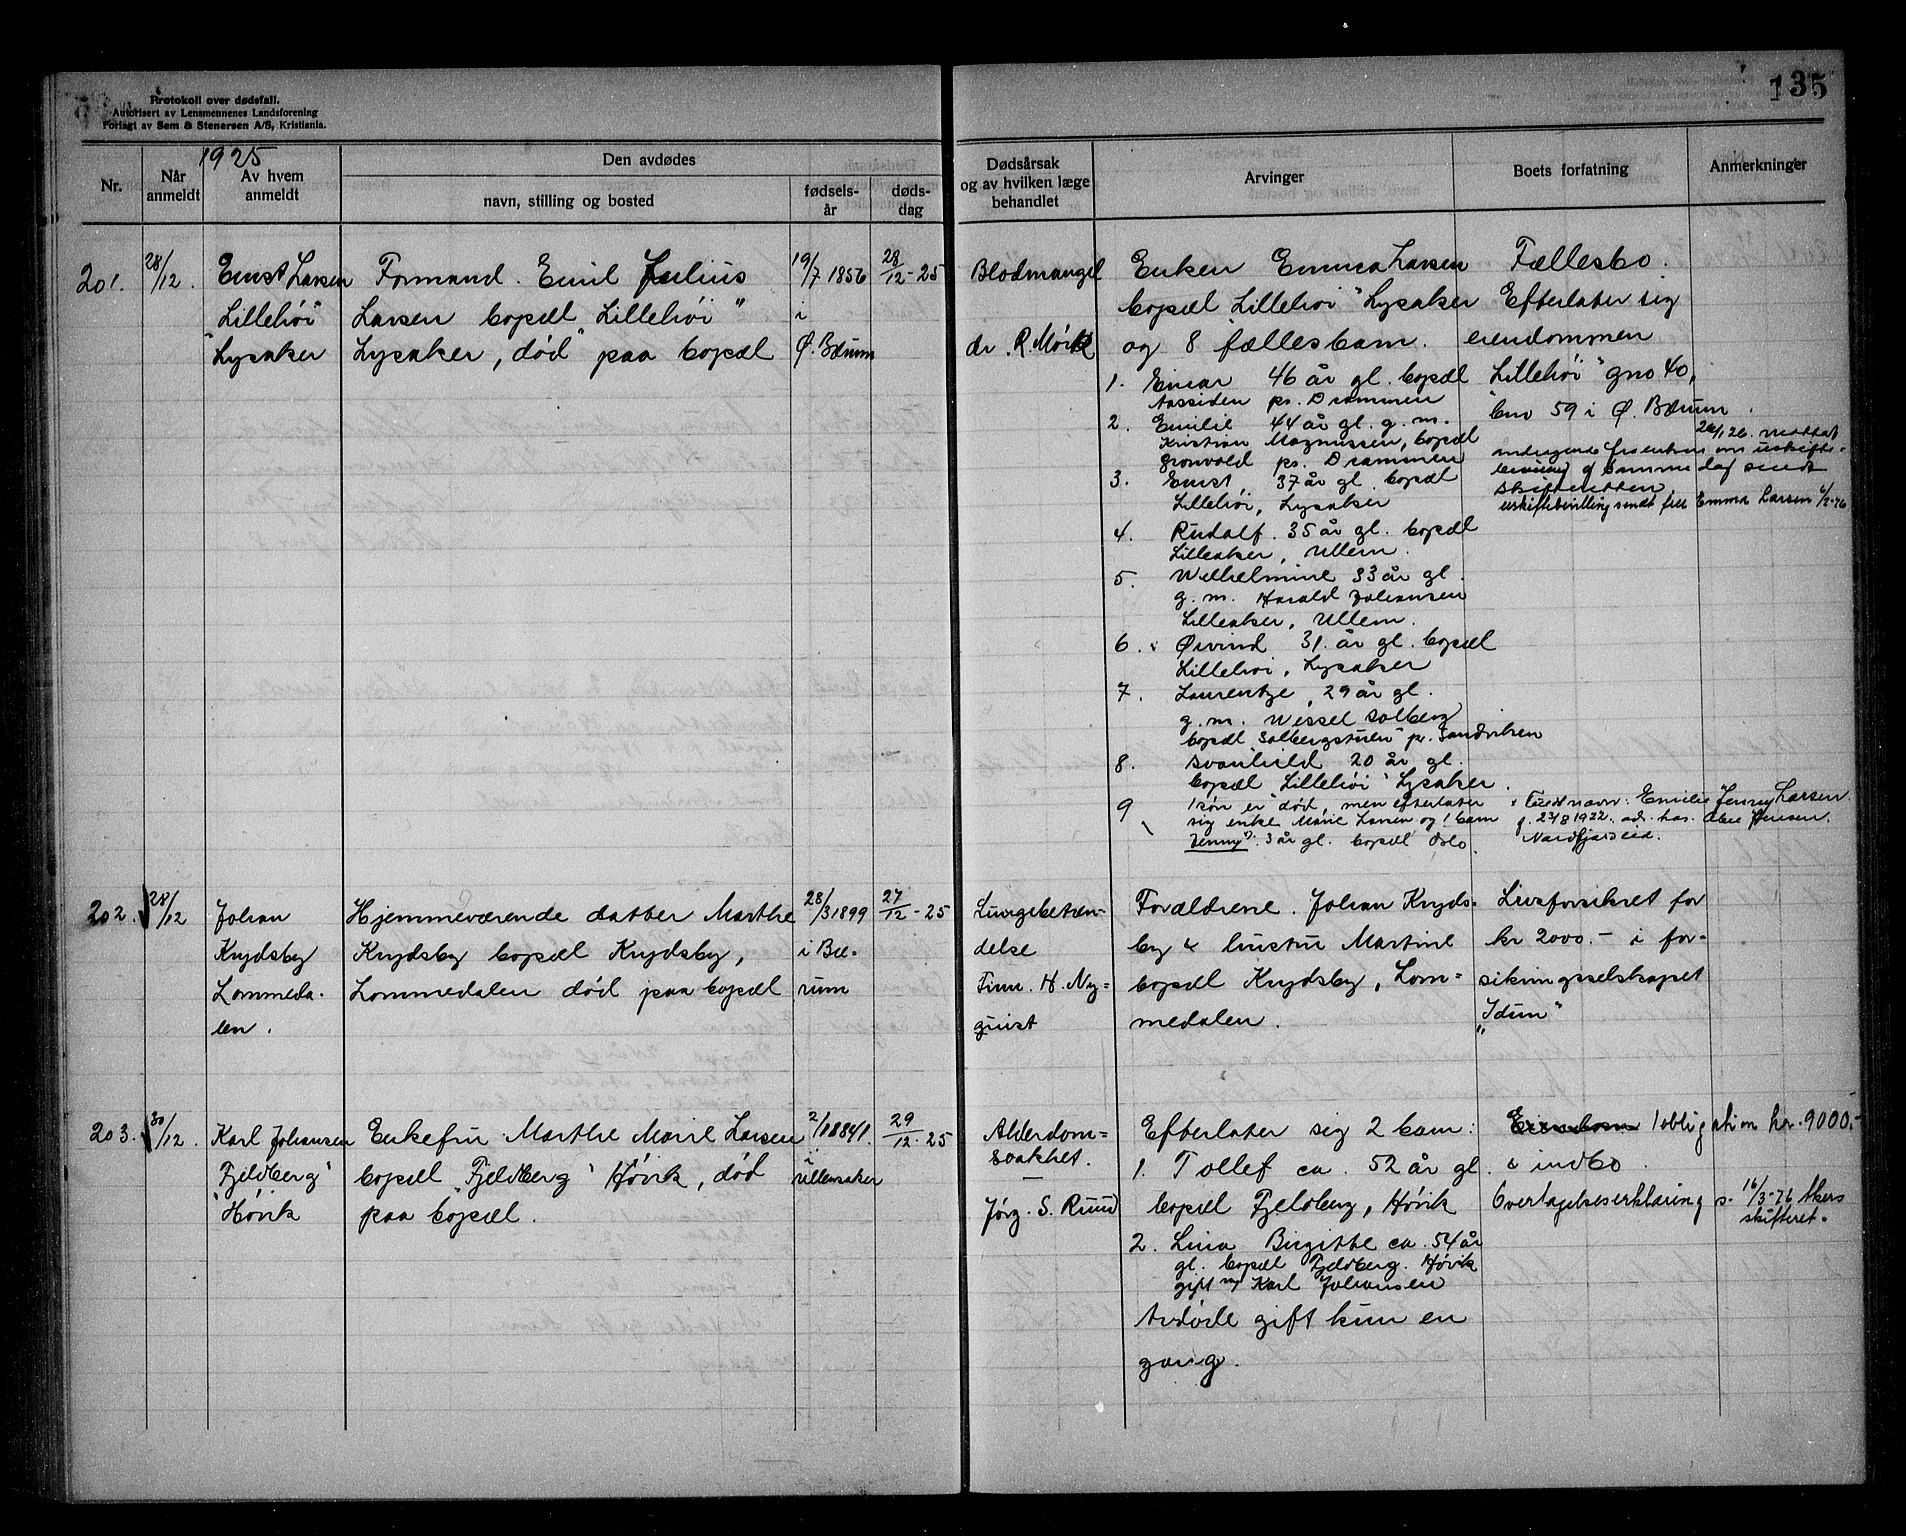 135
Protokoll over dødsfall.
Autorisert av Lensmennenes Landsforening
Forlagt av Sem & Stenersen A/S, Kristiania.
1925
Nr.
Når anmeldt
Av hvem anmeldt
Den avdødes
navn, stilling og bosted
fødselsår
dødsdag
Dødsårsak
og av hvilken læge
behandlet
Arvinger
Boets forfatning
Anmerkninger
201.
28/12.
Ernst Larsen
"Lillehöi"
Lysaker
Formand. Emil Julius
Larsen bopæl "Lillehöi"
Lysaker, död paa bopæl
19/7 1856
i
Ø. Bærum
28/12-25
Blodmangel
dr. R. Mörk
Enken Emma Larsen
bopæl Lillehöi" Lysaker
og 8 fællesbarn.
1. Einar 46 år gl. bopæl
Aassiden pr. Drammen
2. Emilie 44 år gl. g. m.
Kristian Magnussen, bopæl
Grönvold pr. Drammen
3. Ernst, 37 år gl. bopæl
Lillehöi, Lysaker
4. Rudolf. 35 år gl. bopæl
Lilleaker, Ullern.
5. Wilhelmine 33 år gl.
g. m. Harald Johansen
Lilleaker, Ullern.
6. Øivind 31. år gl. bopæl
Lillehöi, Lysaker
7. Laurentze, 29 år gl.
g. m. Wessel Solberg
bopæl "Solbergstuen" pr. Sandviken
8. Svanhild 20 år gl.
bopæl "Lillehöi" Lysaker.
9 1 sön er död, men efterlater
sig enke Marie Larsen og 1 barn
Jenny x) 3 år gl. bopæl Oslo.
Fællesbo.
Efterlater sig
eiendommen
"Lillehöi" gno 40,
bno 59 i Ø. Bærum.
26/1 26. mottat
andragende fra enken om uskifte-
bevilling og samme dag sendt
skifteretten.
uskiftebevilling sendt fru Emma Larsen 6/2-26
x Fuldt navn: Emilie Jenny Larsen
f. 23/8 1922. adr. hos. Olee Jensen.
Nordfjordeid.
202.
28/12
Johan
Krydsby
Lommeda-
len.
Hjemmeværende datter Marthe
Krydsby bopæl Krydsby,
Lommedalen död paa bopæl
28/3 1899
i Bæ-
rum
27/12-25
Lungebetæn-
delse
Finn. H. Ny-
quist
Forældrene. Johan Kryds-
by & hustru Martine
bopæl Krydsby, Lom-
medalen.
Livsforsikret for
kr 2000.- i for-
sikringsselskapet
"Idun"
203.
30/12.
Karl Johansen
"Fjeldberg"
Hövik
Enkefru Marthe Marie Larsen
bopæl "Fjeldberg" Hövik, död
paa bopæl.
2/1 1841.
i
Ullensaker
29/12-25
Alderdom-
svakhet.
Jörg. S. Ruud
Efterlater sig 2 barn:
1. Tollef ca. 52 år gl.
bopæl Fjeldberg, Hövik
2. Lina Birgitte ca. 54 år
gl. bopæl Fjeldberg. Hövik
gift m/ Karl Johansen
Avdöde gift kun en
gang.
Eiendom 1 obligation kr. 9000.-
& indbo.
Overtagelseserklæring s. 16/3-26 Akers
skifteret.